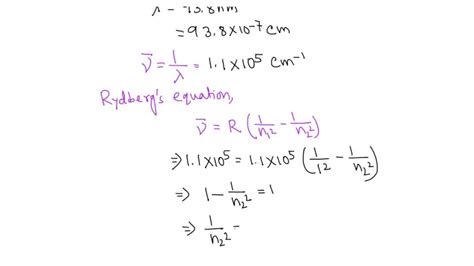 = 93.8×10⁻⁷ cm
ν̅ = 1/λ = 1.1×10⁵ cm⁻¹
Rydberg's equation,
ν̅ = R (1/n₁² − 1/n₂²)
⇒ 1.1×10⁵ = 1.1×10⁵ (1/1² − 1/n₂²)
⇒ 1 − 1/n₂² = 1
⇒ 1/n₂² =